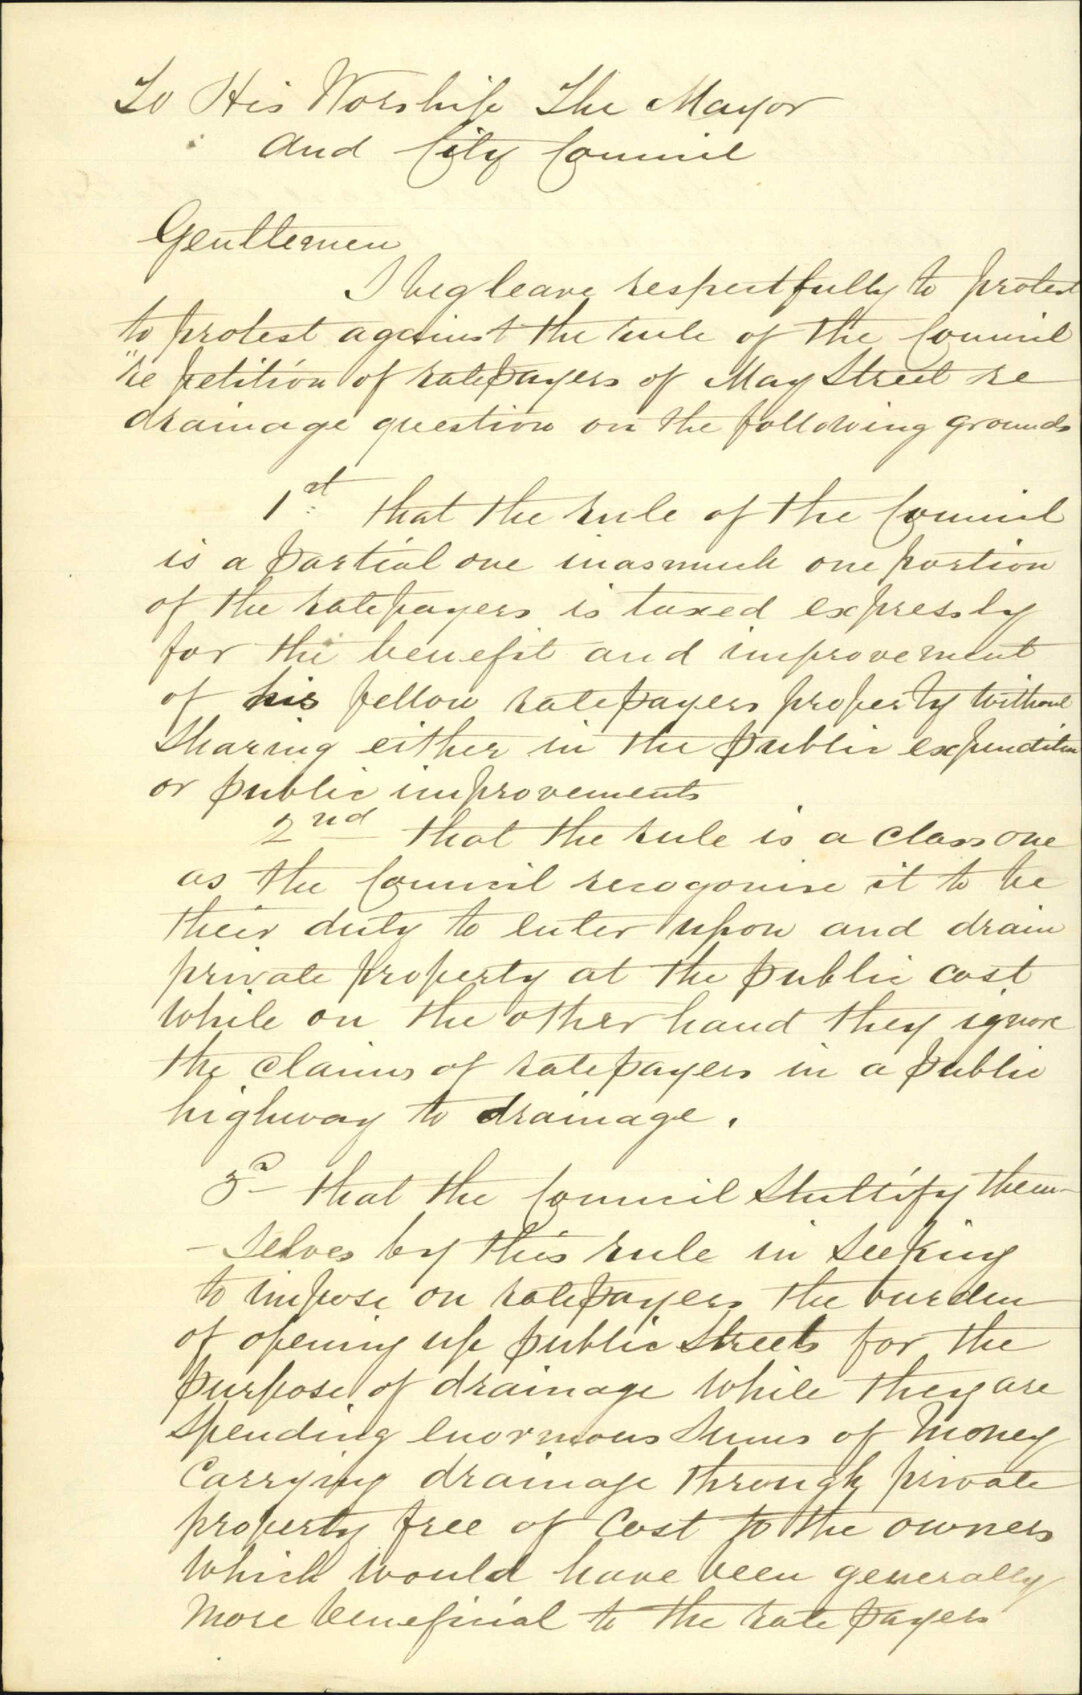 To His Worship The Mayor
and City Council
Gentlemen
I beg leave respectfully to protest
to protest against the rule of the Council
"re petition of ratepayers of May Street re
drainage question on the following grounds
1st that the rule of the Council
is a partial one inasmuch one portion
of the ratepayers is taxed expressly
for the benefit and improvement
of his fellow ratepayers property without
sharing either in the public expenditure
or public improvements
2nd that the rule is a class one
as the Council recogonise it to be
their duty to enter upon and drain
private property at the public cost
while on the other hand they ignore
the claims of ratepayers in a public
highway to drainage.
3d that the Council Stultify them-
-selves by this rule in seeking
to impose on ratepayers the burden
of opening up public Streets for the
purpose of drainage while they are
spending enormous sums of money
carrying drainage through private
property free of cost to the owners
which would have been generally
more beneficial to the rate payers